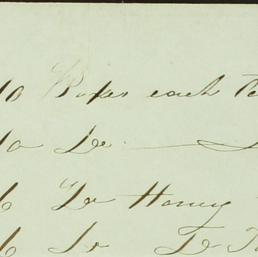 10 Boxes each
10 Do
6 Do Honey
6 Do